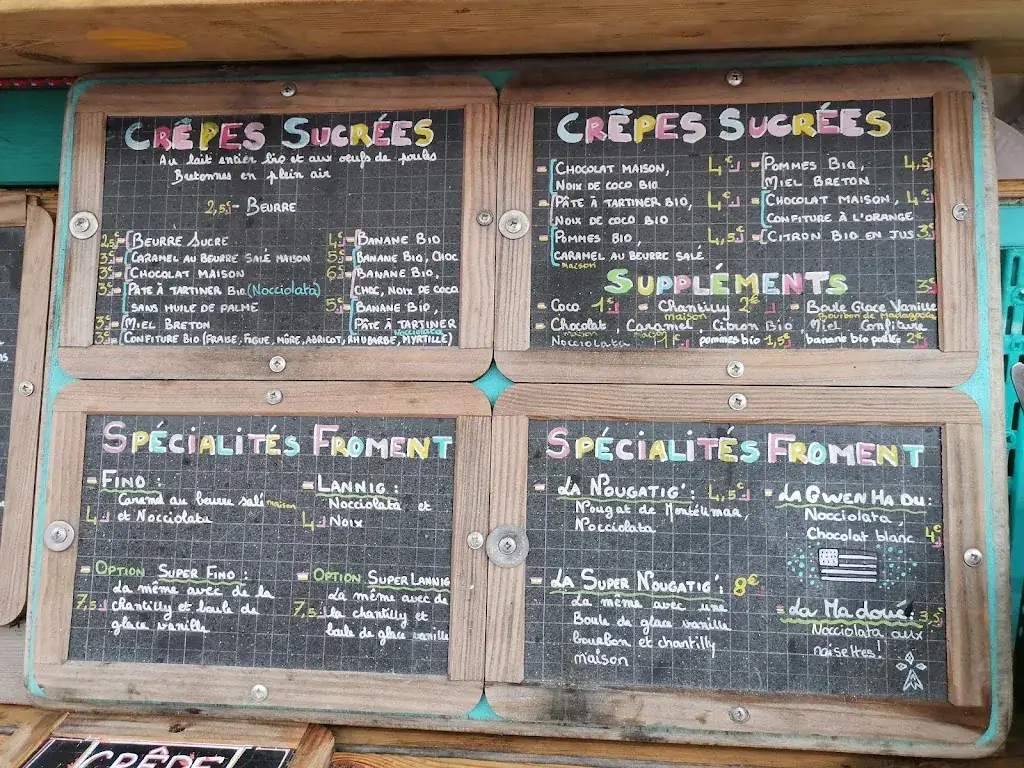 CRÊPES SUCRÉES
Au lait entier bio et aux oeufs de poules
Bretonnes en plein air
2,5 - BEURRE
2,5 - BEURRE SUCRE
3€ - CARAMEL AU BEURRE SALÉ MAISON
3€ - CHOCOLAT MAISON
3€ - PÂTE À TARTINER BIO (Nocciolata)
SANS HUILE DE PALME
3€ - MIEL BRETON
3€ - CONFITURE BIO (FRAISE, FIGUE, MÛRE, ABRICOT, RHUBARBE, MYRTILLE)
4€ - BANANE BIO
5€ - BANANE BIO, CHOC
6€ - BANANE BIO,
CHOC, NOIX DE COCO
5€ - BANANE BIO,
PÂTE À TARTINER
Nocciolata
CRÊPES SUCRÉES
CHOCOLAT MAISON, 4€
NOIX DE COCO BIO
PÂTE À TARTINER BIO, 4€
NOIX DE COCO BIO
POMMES BIO, 4,5€
CARAMEL AU BEURRE SALÉ
maison
POMMES BIO, 4,5€
MIEL BRETON
CHOCOLAT MAISON, 4€
CONFITURE À L'ORANGE
CITRON BIO EN JUS 3€
SUPPLÉMENTS
Coco 1€ - Chantilly 2€ - Boule Glace Vanille 3€
maison Bourbon de Madagascar
Chocolat, Caramel, Citron Bio, Miel, Confiture
maison
Nocciolata 1€ pommes bio 1,5€ banane bio poêlée 2€
SPÉCIALITÉS FROMENT
FINO :
Caramel au beurre salé maison
4 et Nocciolata
LANNIG :
Nocciolata et
4 Noix
OPTION SUPER FINO :
La même avec de la
7,5 chantilly et boule de
glace vanille
OPTION SUPER LANNIG
La même avec de
7,5 la chantilly et
boule de glace vanille
SPÉCIALITÉS FROMENT
LA NOUGATIG' : 4,5€
Nougat de Montélimar,
Nocciolata
LA SUPER NOUGATIG' : 8€
La même avec une
Boule de glace vanille
bourbon et chantilly
maison
LA GWEN HA DU :
Nocciolata,
Chocolat blanc 4€
La Ma doué : 3,5
Nocciolata aux
noisettes !
CRÊPE!